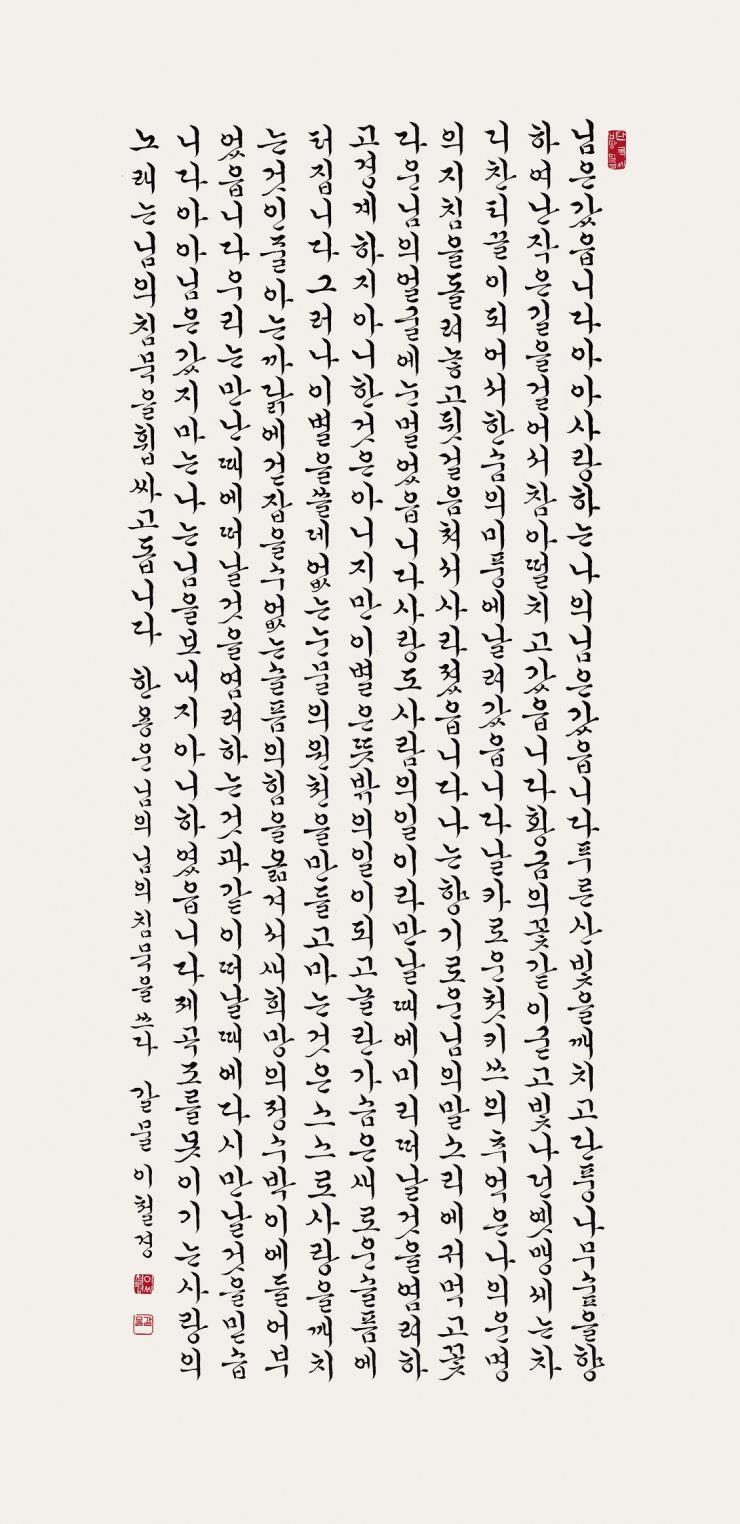 님은갔읍니다아아사랑하는나의님은갔읍니다푸른산빛을깨치고단풍나무숲을향
하여난작은길을걸어서참아떨치고갔읍니다황금의꽃같이굳고빛나던옛맹세는차
디찬티끌이되어서한숨의미풍에날려갔읍니다날카로운첫키쓰의추억은나의운명
의지침을돌려놓고뒷걸음쳐서사라졌읍니다나는향기로운님의말소리에귀먹고꽃
다운님의얼굴에눈멀었읍니다사랑도사람의일이라만날때에미리떠날것을염려하
고경계하지아니한것은아니지만이별은뜻밖의일이되고놀란가슴은새로운슬픔에
터집니다그러나이별을쓸데없는눈물의원천을만들고마는것은스스로사랑을깨치
는것인줄아는까닭에걷잡을수없는슬픔의힘을옮겨서새희망의정수박이에들어부
었읍니다우리는만난때에떠날것을염려하는것과같이떠날때에다시만날것을믿습
니다아아님은갔지마는나는님을보내지아니하였읍니다제곡조를못이기는사랑의
노래는님의침묵을휩싸고돕니다 한용운님의 님의침묵을쓰다 갈물 이철경
갈물